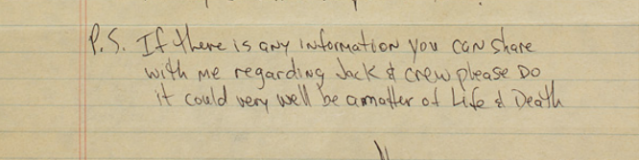 P.S. If there is any information you can share
with me regarding Jack & crew please Do
it could very well be a matter of Life & Death